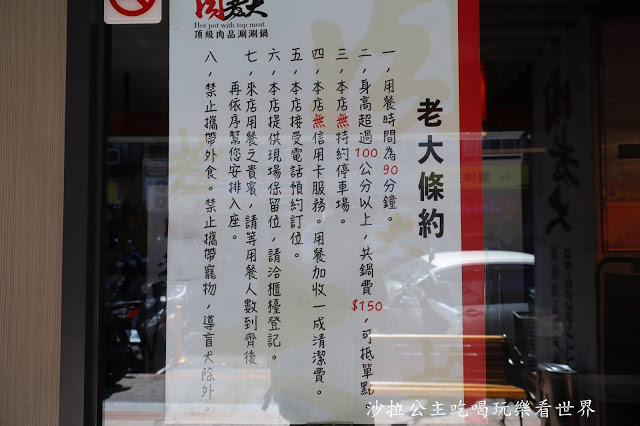 肉老大
Hot pot with top meat
頂級肉品涮涮鍋
老大條約
一，用餐時間為90分鐘。
二，身高超過100公分以上，共鍋費$150，可抵單點。
三，本店無特約停車場。
四，本店無信用卡服務。用餐加收一成清潔費。
五，本店接受電話預約訂位。
六，本店提供現場保留位，請洽櫃檯登記。
七，來店用餐之貴賓，請等用餐人數到齊後
再依序幫您安排入座。
八，禁止攜帶外食。禁止攜帶寵物，導盲犬除外。
沙拉公主吃喝玩樂看世界